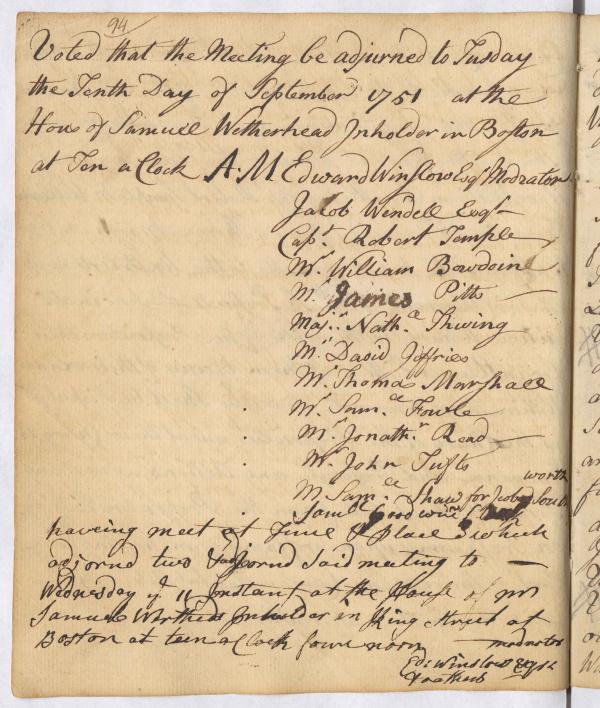 94
Voted that the Meeting be adjurned to Tusday
the Tenth Day of September 1751 at the
Hous of Samuel Wetherhead Inholder in Boston
at Ten a Clock A:M Edward Winslow Esqr Modrator
Jacob Wendell Esqr
Capt. Robert Temple
Mr. William Bowdoine
Mr. James Pitts
Majr. Nathll Thwing
Mr. David Jeffries
Mr. Thomas Marshall
Mr. Samll Fowle
Mr. Jonathn. Read
Mr. John Tufts
worth
Mr. Samll Shaw for Jacob South
Saml Goodwin
haveing meet at Time & place which
adjornd two & adjornd said meeting to
Wednesday ye 11 Instant at the House of mr
Samuel Inholder in King Street at
Boston at teen a Clock fowr noon
modrator
Ed: Winslow Esqr